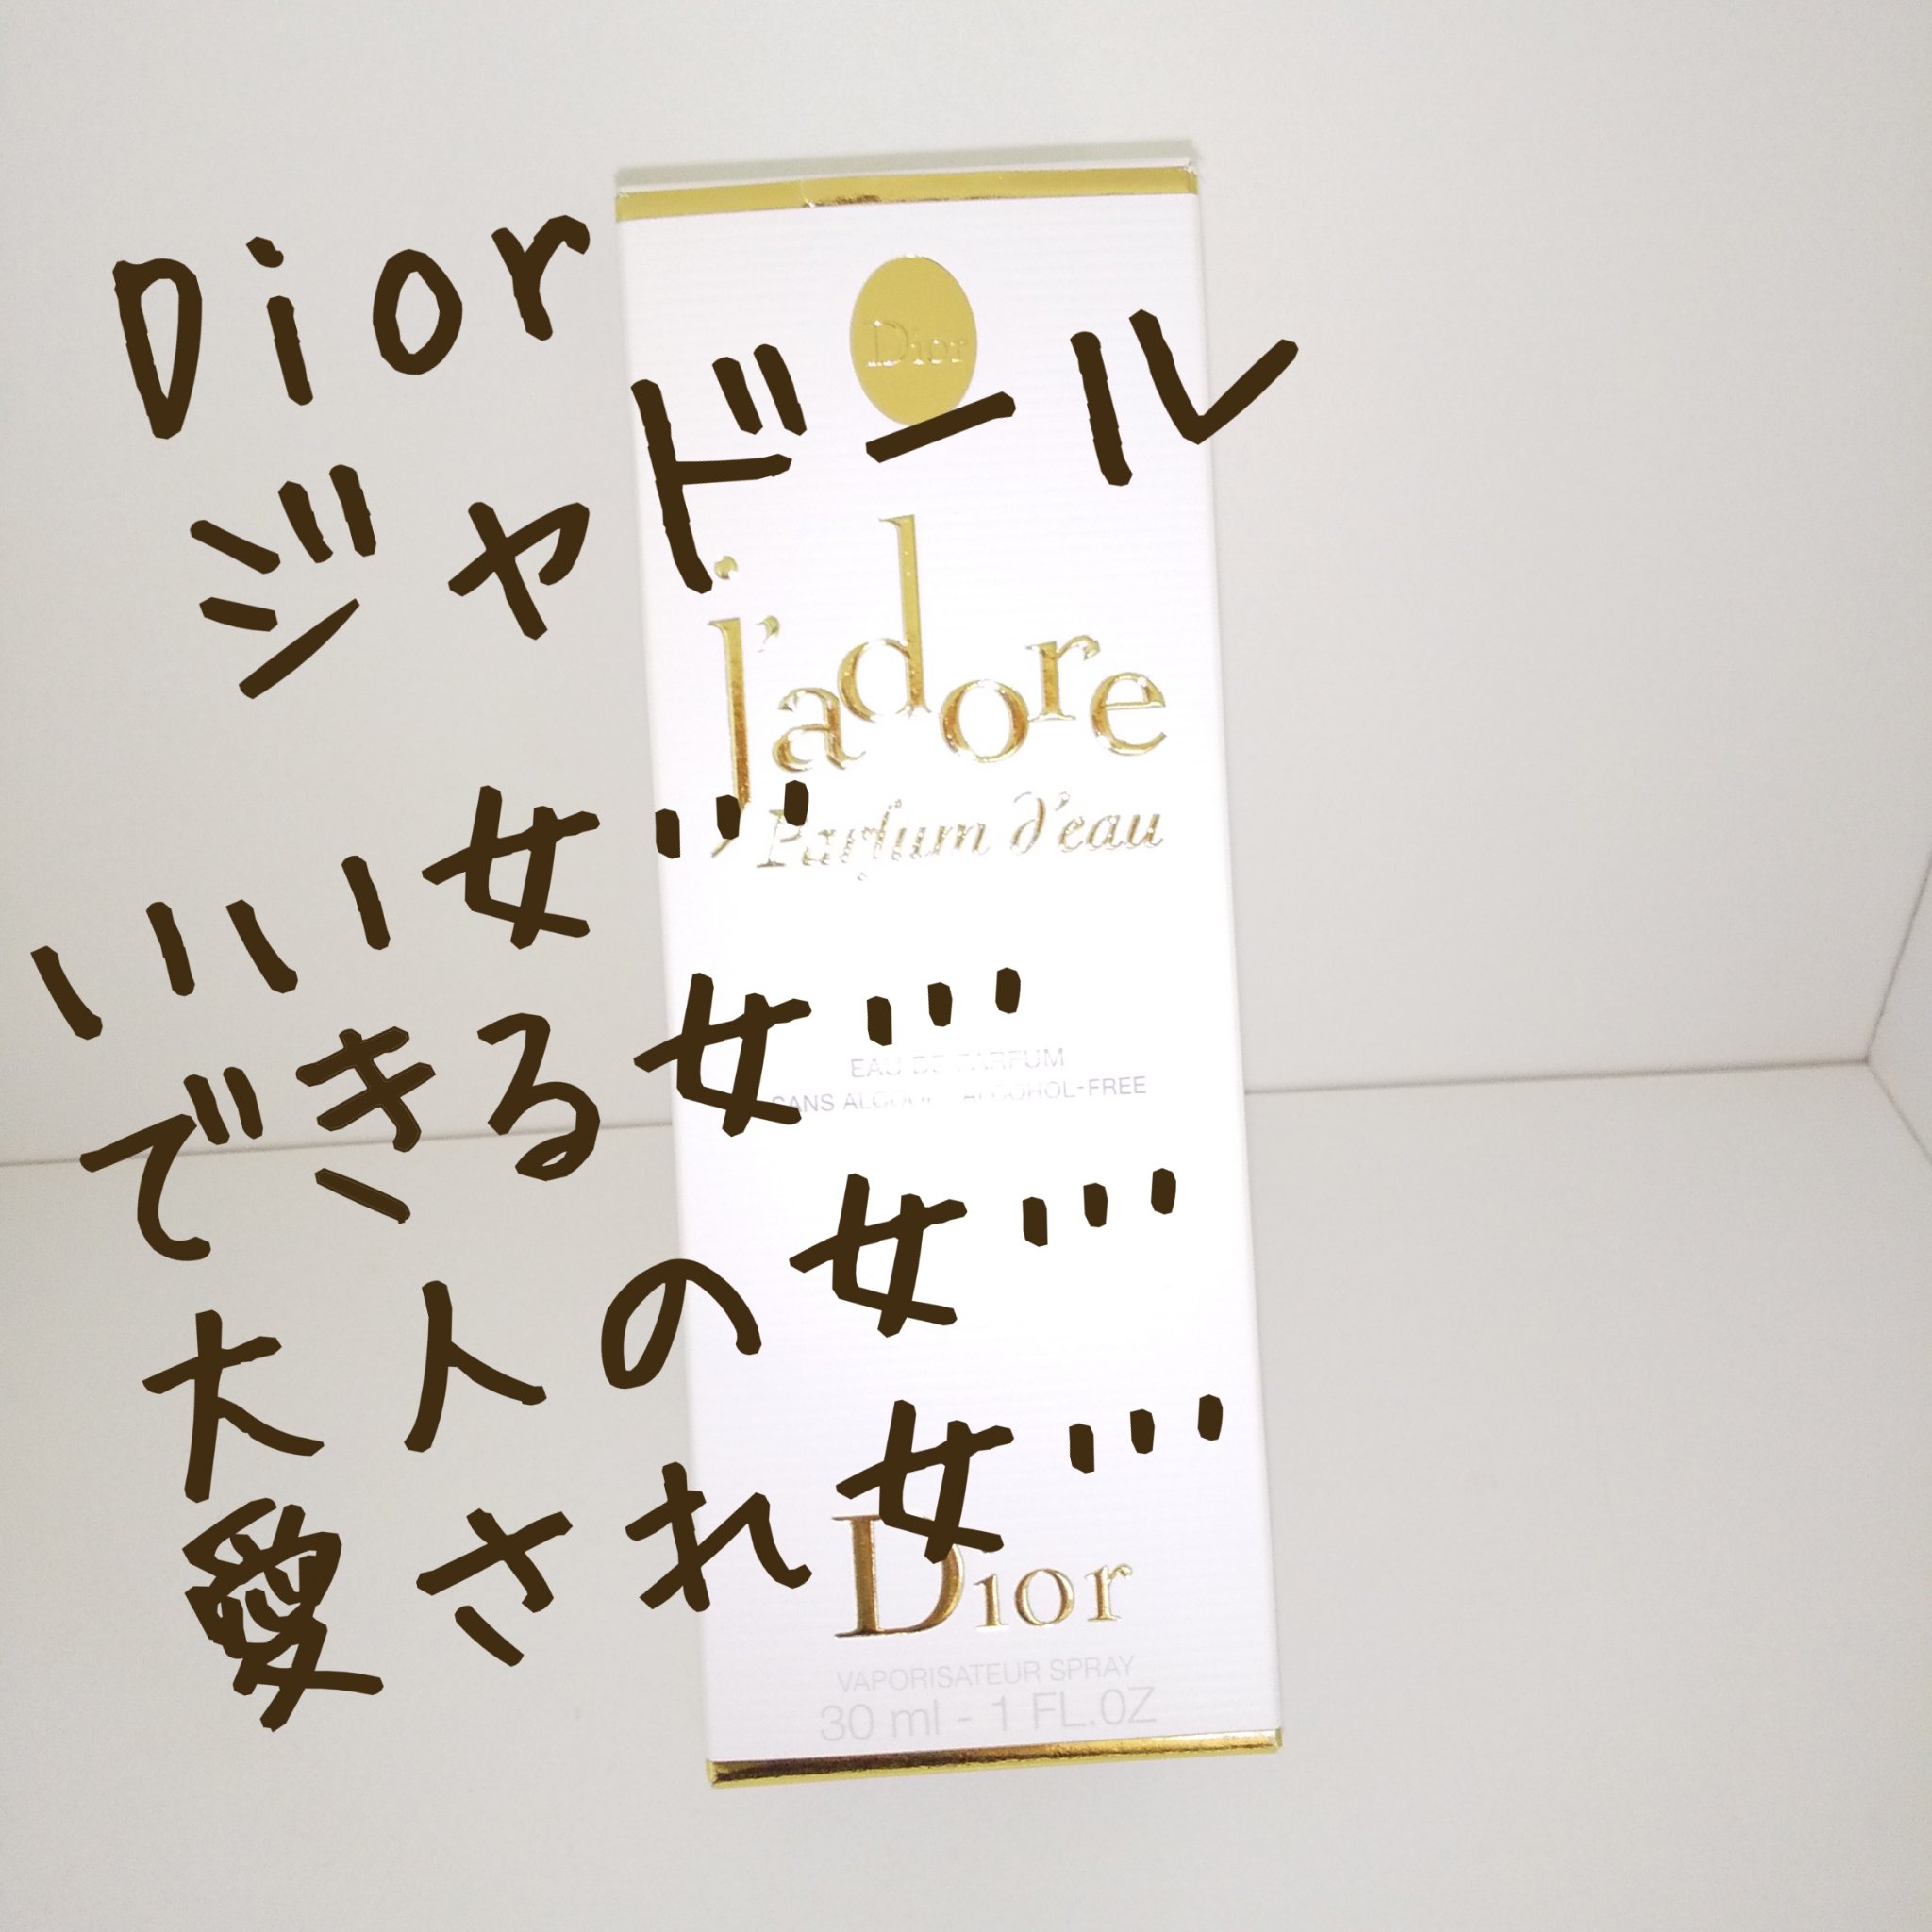 Dior
ジャドール
いい女…
できる女…
大人の女…
愛され女…
Dior
j'adore
Parfum d'eau
EAU DE PARFUM
SANS ALCOOL - ALCOHOL-FREE
Dior
VAPORISATEUR SPRAY
30 ml - 1 FL.OZ